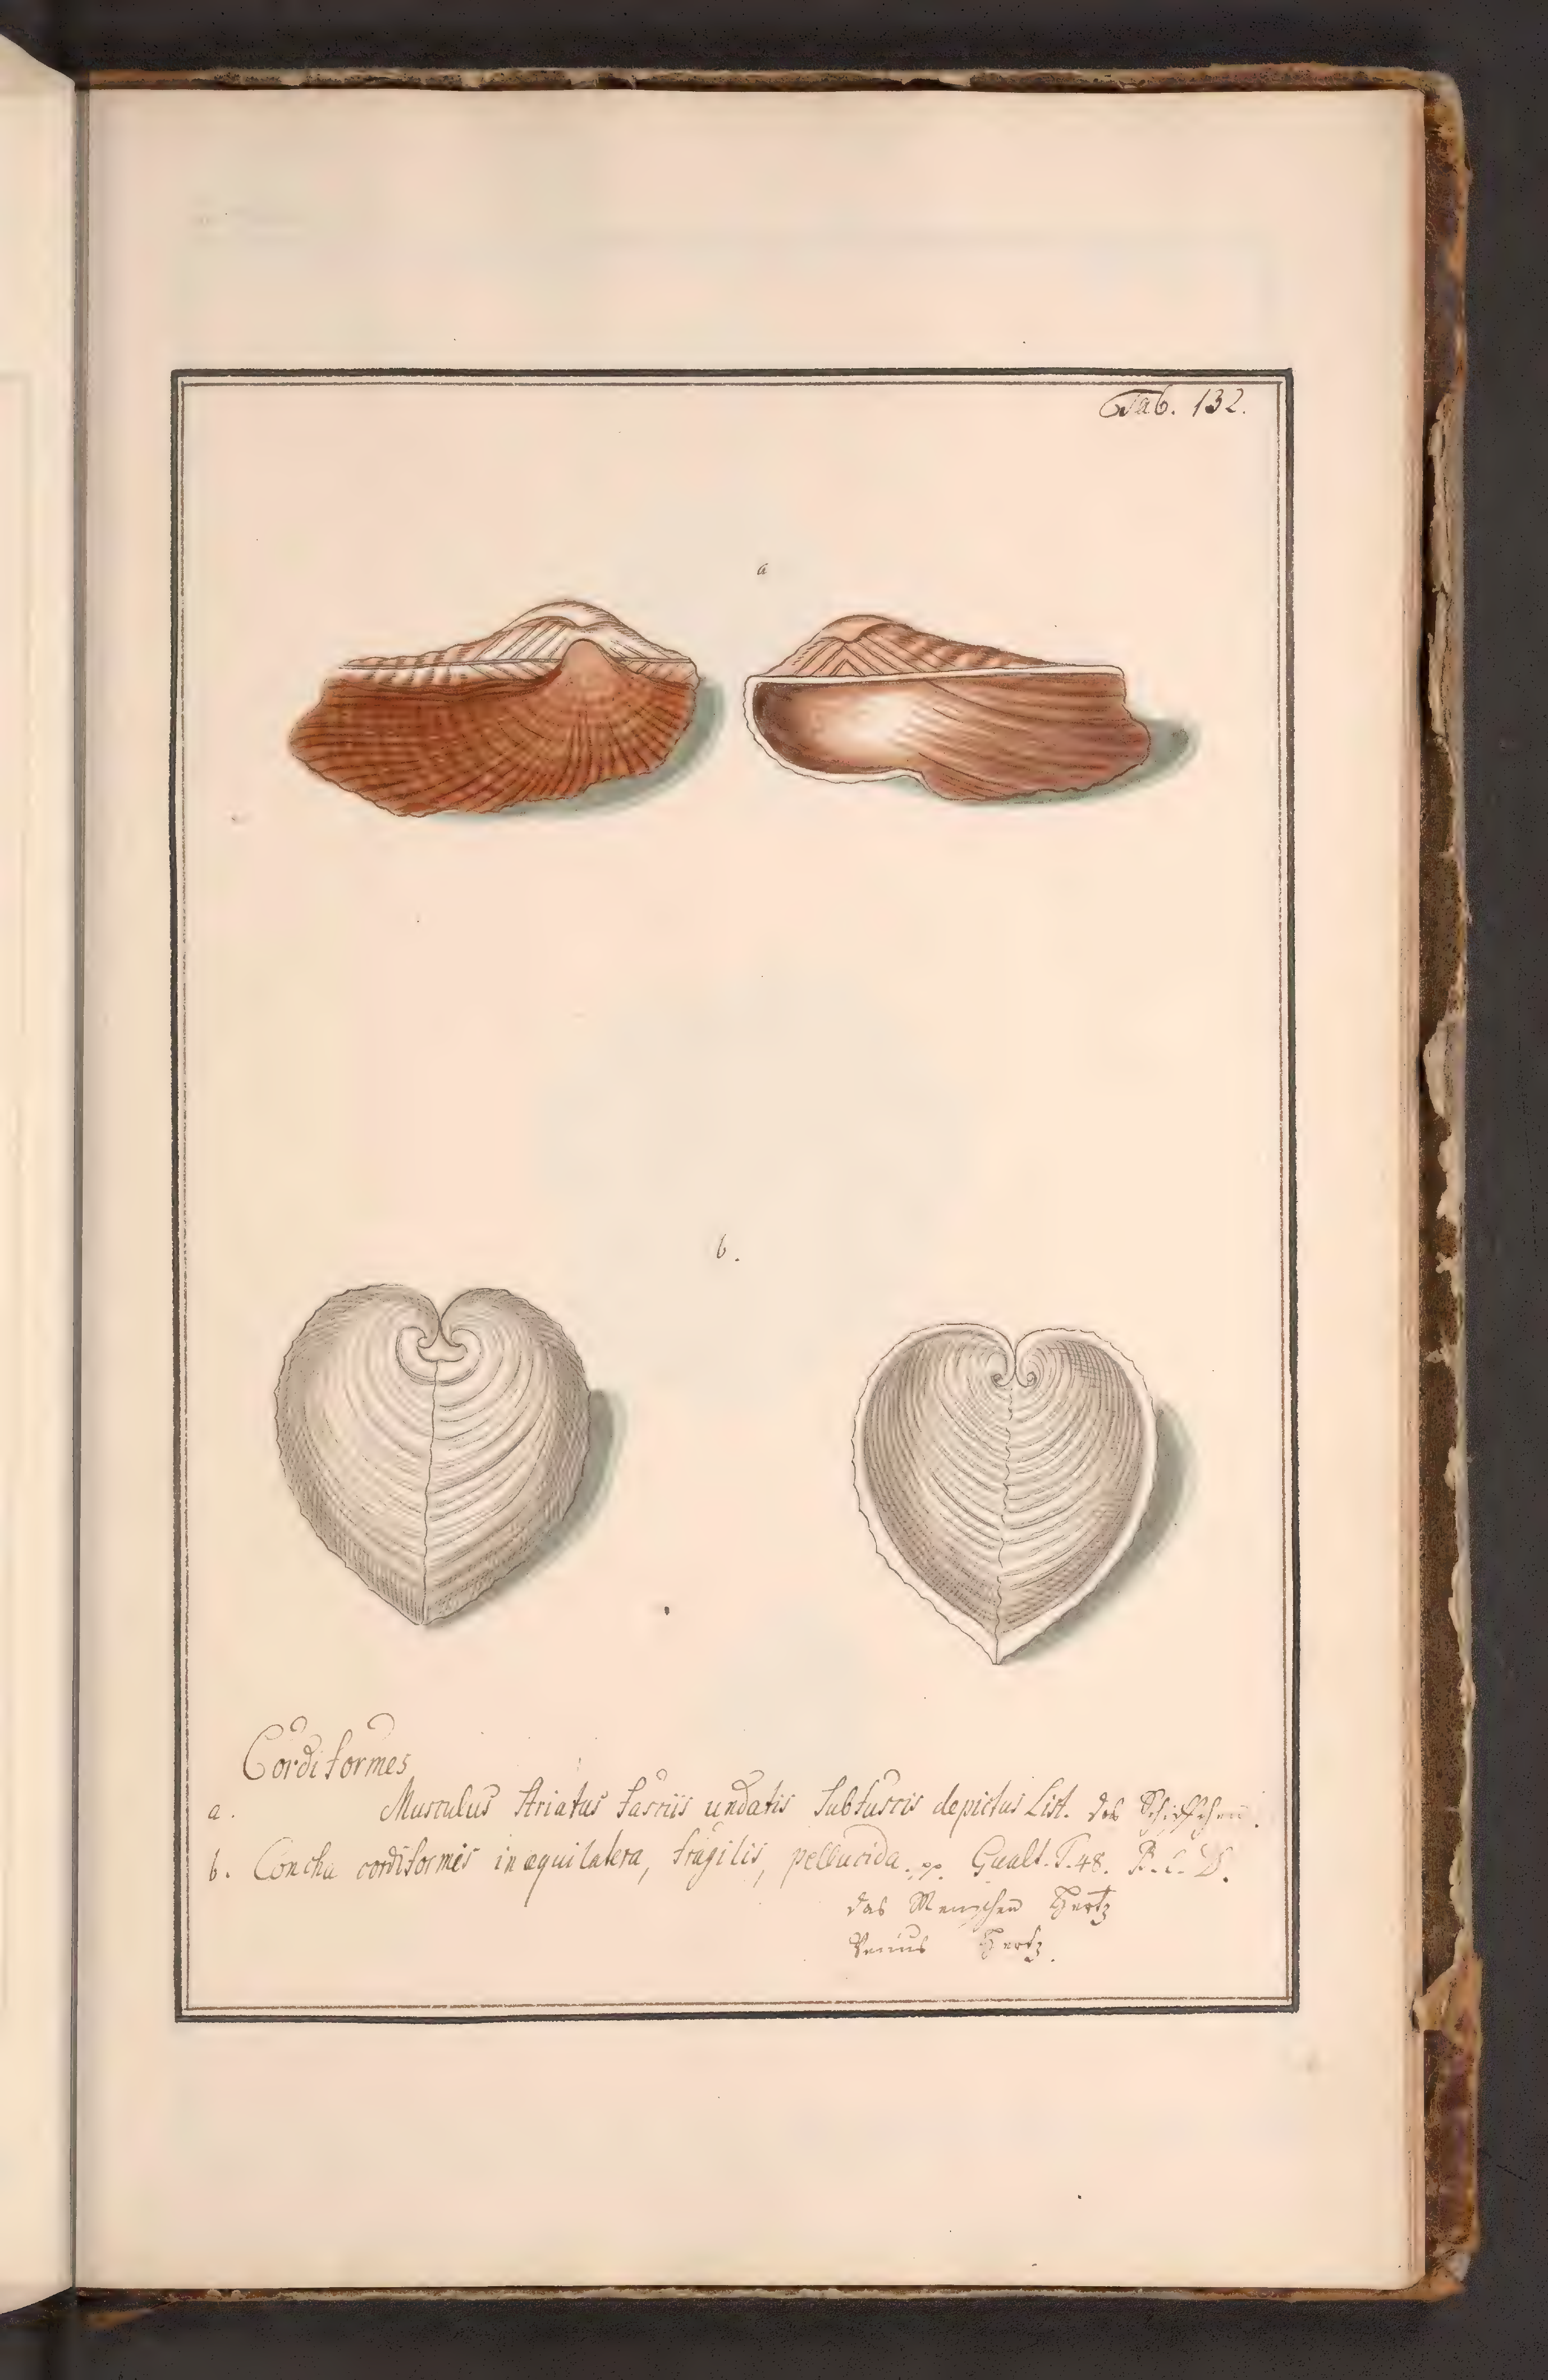 Tab. 132.
a
b.
Cordiformes
a. Musculus striatus fasciis undatis subfuscis depictus List. das Schiffchen.
b. Concha cordiformis inæquilatera, fragilis, pellucida. pp. Gualt. T. 48. B. C. D.
das Menschen Hertz
Venus Hertz.